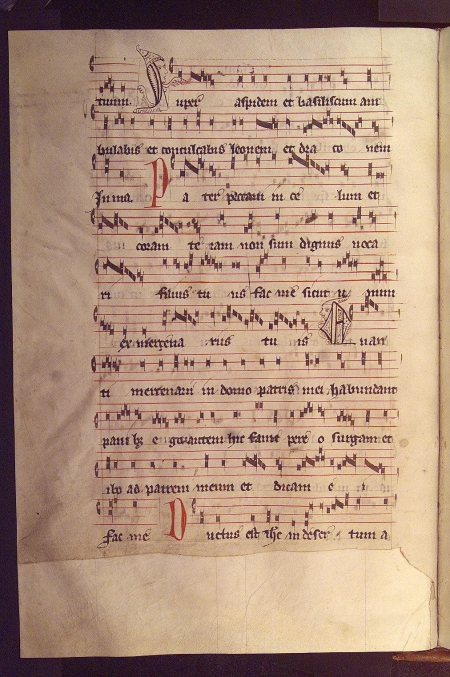 tuum. Super aspidem et basiliscum am
bulabis et conculcabis leonem et dra co nem
In ma. Pa ter peccavi in ce lum et
coram te iam non sum dignus voca
ri filius tu us fac me sicut u num
ex mercena riis tu is Quan
ti mercenarii in domo patris mei habundant
pani bz ego autem hic fame pere o surgam et
ibo ad patrem meum et dicam e i
fac me Ductus est ihc in deser tum a